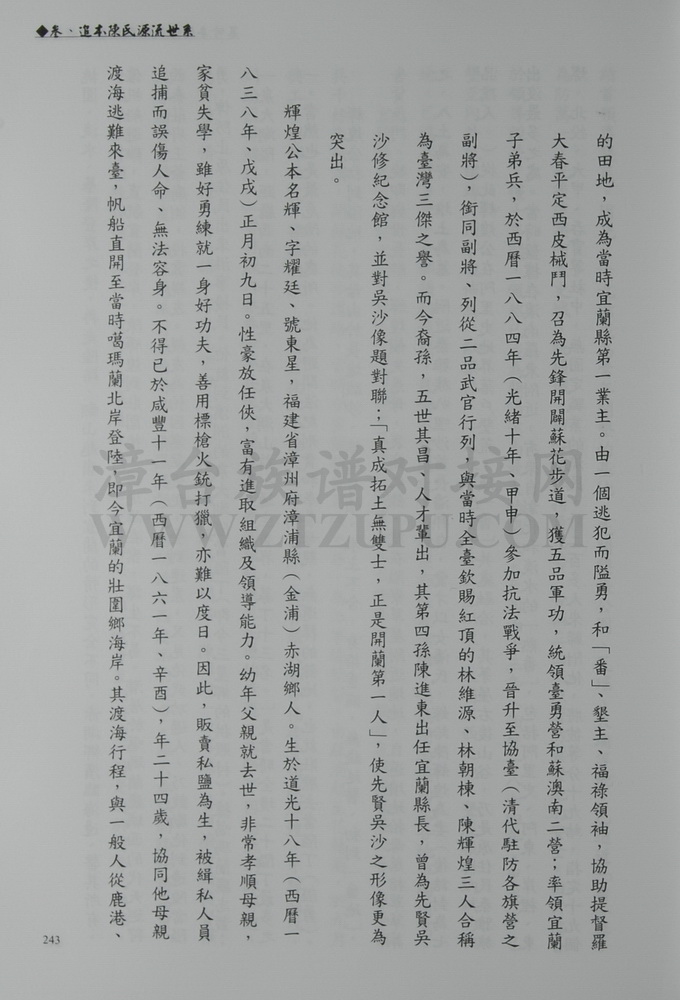 ◆叁、追本陳氏源流世系
的田地，成為當時宜蘭縣第一業主。由一個逃犯而隘勇，和「番」、墾主、福祿領袖，協助提督羅
大春平定西皮械鬥，召為先鋒開闢蘇花步道，獲五品軍功，統領臺勇營和蘇澳南二營；率領宜蘭
子弟兵，於西曆一八八四年（光緒十年、甲申）參加抗法戰爭，晉升至協臺（清代駐防各旗營之
副將），銜同副將、列從二品武官行列，與當時全臺欽賜紅頂的林維源、林朝棟、陳輝煌三人合稱
為臺灣三傑之譽。而今裔孫，五世其昌、人才輩出，其第四孫陳進東出任宜蘭縣長，曾為先賢吳
沙修紀念館，並對吳沙像題對聯；「真成拓土無雙士，正是開蘭第一人」，使先賢吳沙之形像更為
突出。
輝煌公本名輝、字耀廷、號東星，福建省漳州府漳浦縣（金浦）赤湖鄉人。生於道光十八年（西曆一
八三八年、戊戌）正月初九日。性豪放任俠，富有進取組織及領導能力。幼年父親就去世，非常孝順母親，
家貧失學，雖好勇練就一身好功夫，善用標槍火銃打獵，亦難以度日。因此，販賣私鹽為生，被緝私人員
追捕而誤傷人命、無法容身。不得已於咸豐十一年（西曆一八六一年、辛酉），年二十四歲，協同他母親
渡海逃難來臺，帆船直開至當時噶瑪蘭北岸登陸，即今宜蘭的壯圍鄉海岸。其渡海行程，與一般人從鹿港、
243
漳台族谱对接网
WWW.ZTZUPU.COM